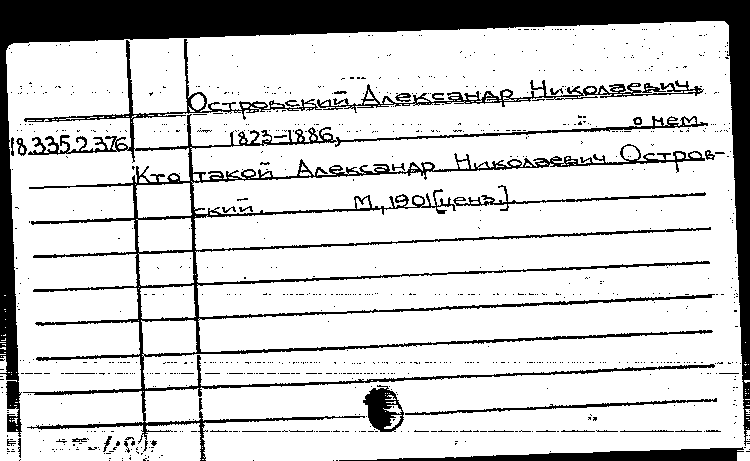 Островский, Александр Николаевич,
18.335.2.376
1823-1886,
о нем.
Кто такой Александр Николаевич Остров-
ский. М., 1901[ценз.].